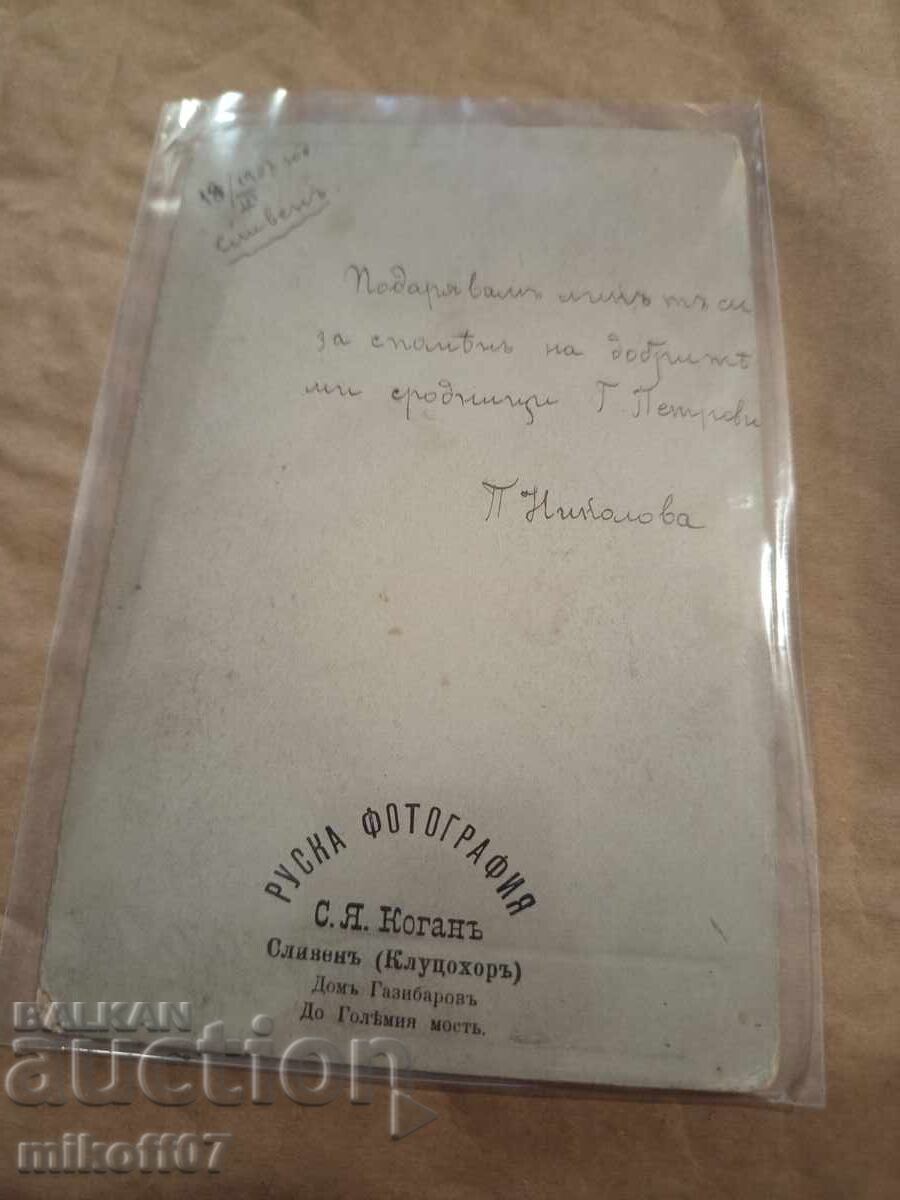 18/III 1907 год
Сливенъ.
Подарявамъ ликътъ си
за споменъ на добритѣ
ми сродници Г. Петрови
П Николова
РУСКА ФОТОГРАФИЯ
С. Я. Коганъ
Сливенъ (Клуцохоръ)
Домъ Газибаровъ
До Голѣмия мостъ.
BALKAN
auction
mikoff07